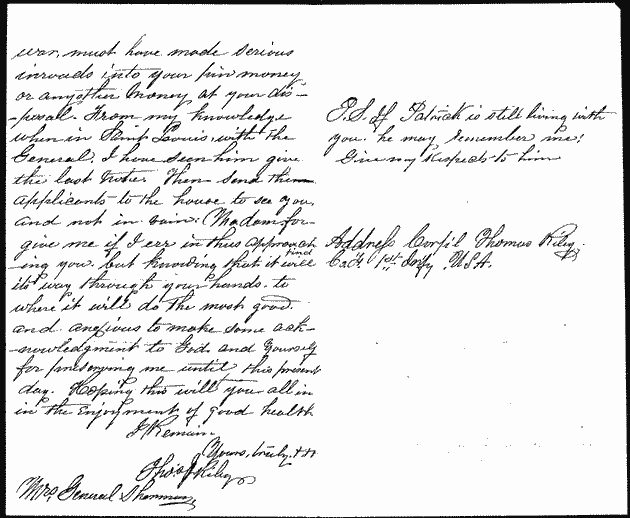 war, must have made serious
inroads into your pin money
or any other money at your dis-
-posal. From my knowledge
when in Saint Louis, with the
General, I have seen him give
the last Notes. Then send them
applicants to the house to see you,
and not in vain: Madam for-
give me if I err in thus approach-
ing you. but knowing that it will find
its way through your hands. to
where it will do the most good.
and anxious to make some ack-
-nowledgment to God, and Yourself
for preserving me until this present
day. Hoping this will you all in
in the Enjoyment of good health
I Remain
Yours, truly,
Thos J Riley
Mrs General Sherman
P.S. If Patrick is still living with
you. he may remember me!
Give my respects to him
Address Corp'l Thomas Riley
1st Infy. U.S.A.